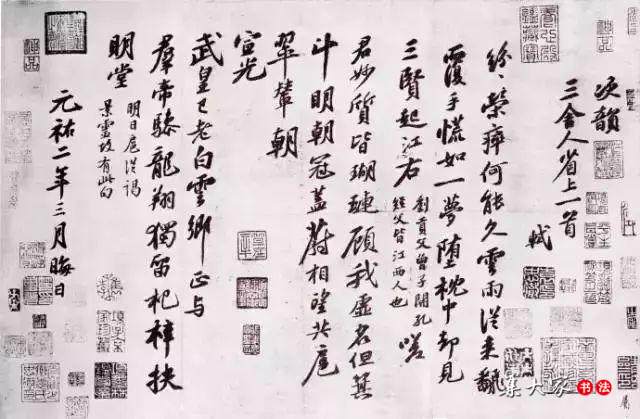 次韻
三舍人省上一首
軾
紛紛榮瘁何能久雲雨從来翻
覆手慌如一夢墮枕中却見
三賢起江右
劉貢父曾子開孔
經父皆江西人也
嗟
君妙質皆瑚璉顧我虛名但箕
斗明朝冠蓋蔚相望共扈
翠輦朝
宣光
武皇已老白雲鄉正与
羣帝驂龍翔獨留杞梓扶
明堂
明日扈從謁
景靈故有此句
元祐二年三月晦日
集大家书法